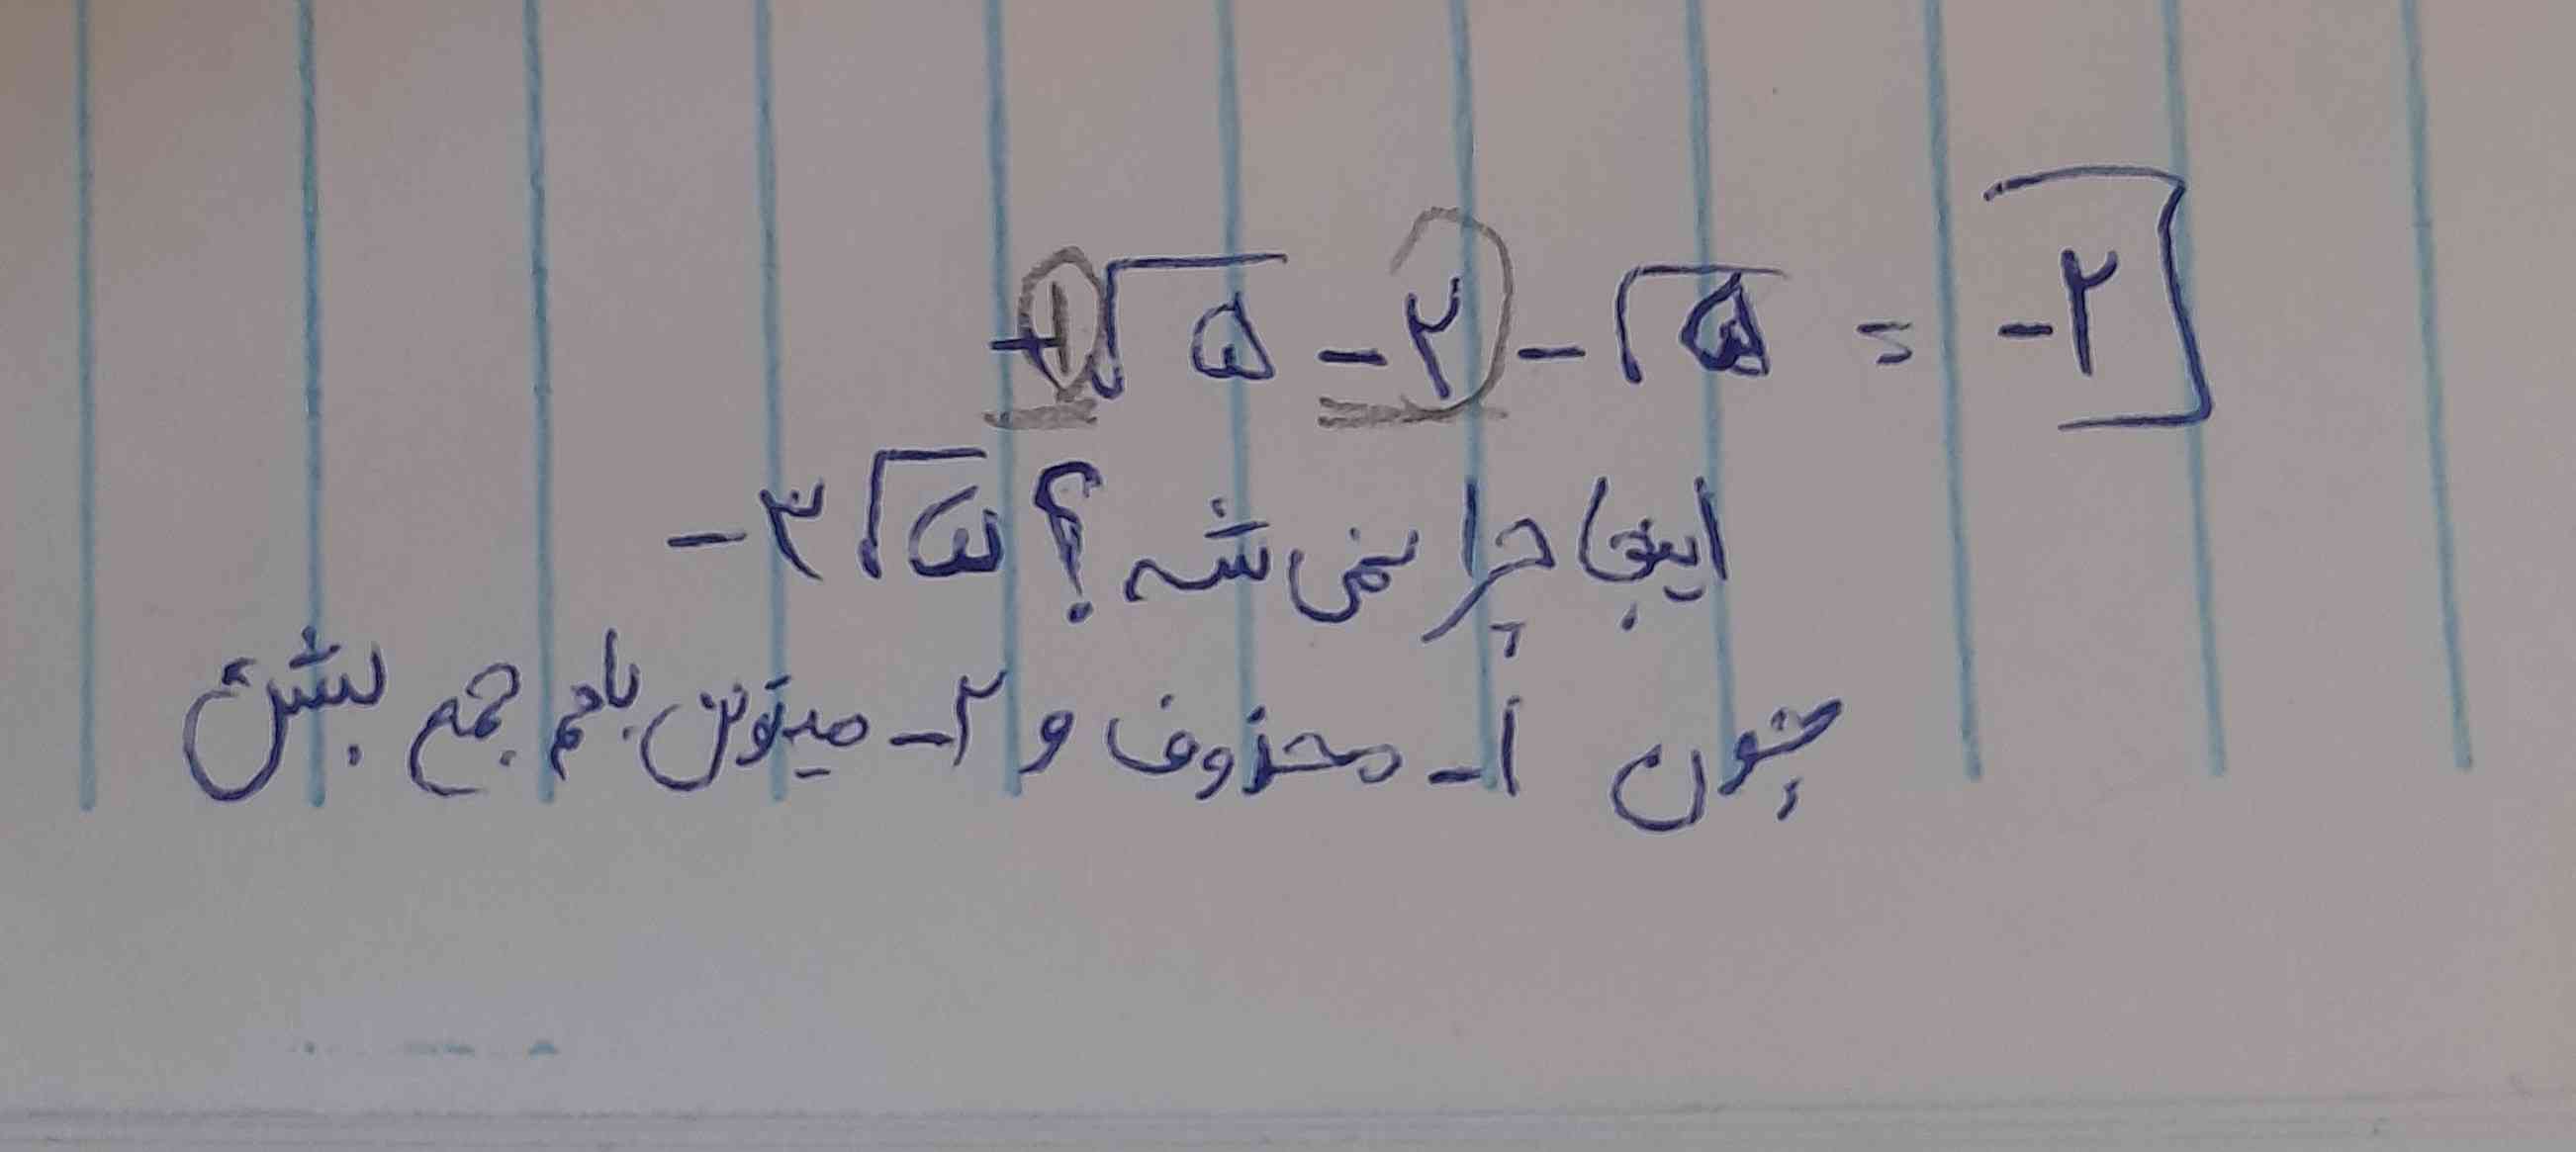 -۱√۵ - ۲ - √۵ = -۲
اینجا چرا نمی شه ؟ -۳√۵
چون ۱- محذوف و ۲- میتونن باهم جمع بشن